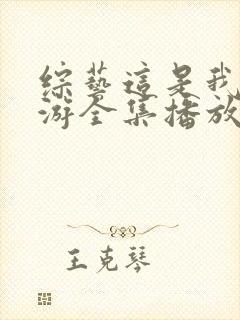 綜藝這是我
游全集播放
王克琴